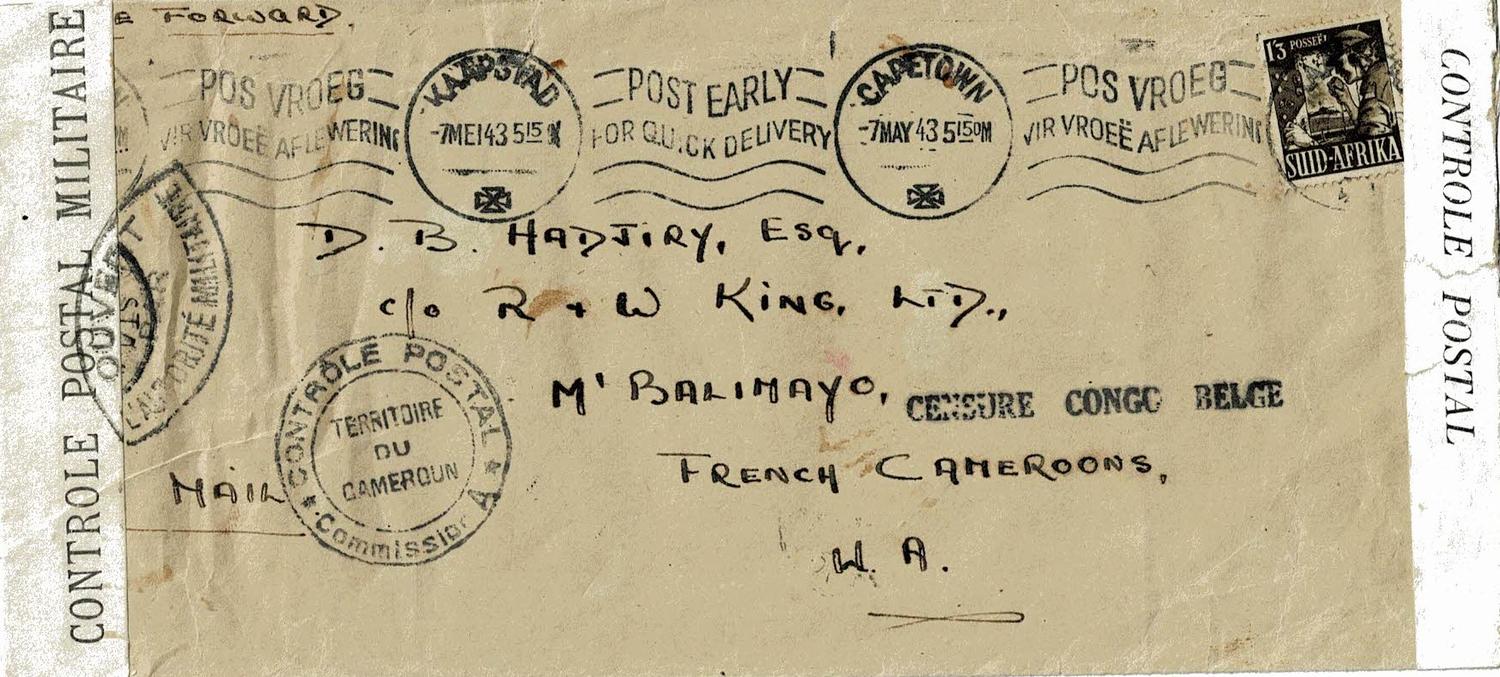 FORWARD.
POS VROEG
VIR VROEË AFLEWERING
KAAPSTAD
-7MEI43 515
POST EARLY
FOR QUICK DELIVERY
CAPETOWN
-7MAY 43 515PM
POS VROEG
VIR VROEË AFLEWERING
1'3 POSSEËL
SUID-AFRIKA
CONTROLE POSTAL MILITAIRE
OUVERT
PAR
L'AUTORITÉ MILITAIRE
D. B. HADJIRY, ESQ,
c/o R + W KING, LTD.,
M'BALIMAYO,
CENSURE CONGO BELGE
FRENCH CAMEROONS,
W. A.
MAIL
CONTRÔLE POSTAL
TERRITOIRE
DU
CAMEROUN
Commission A
CONTROLE POSTAL